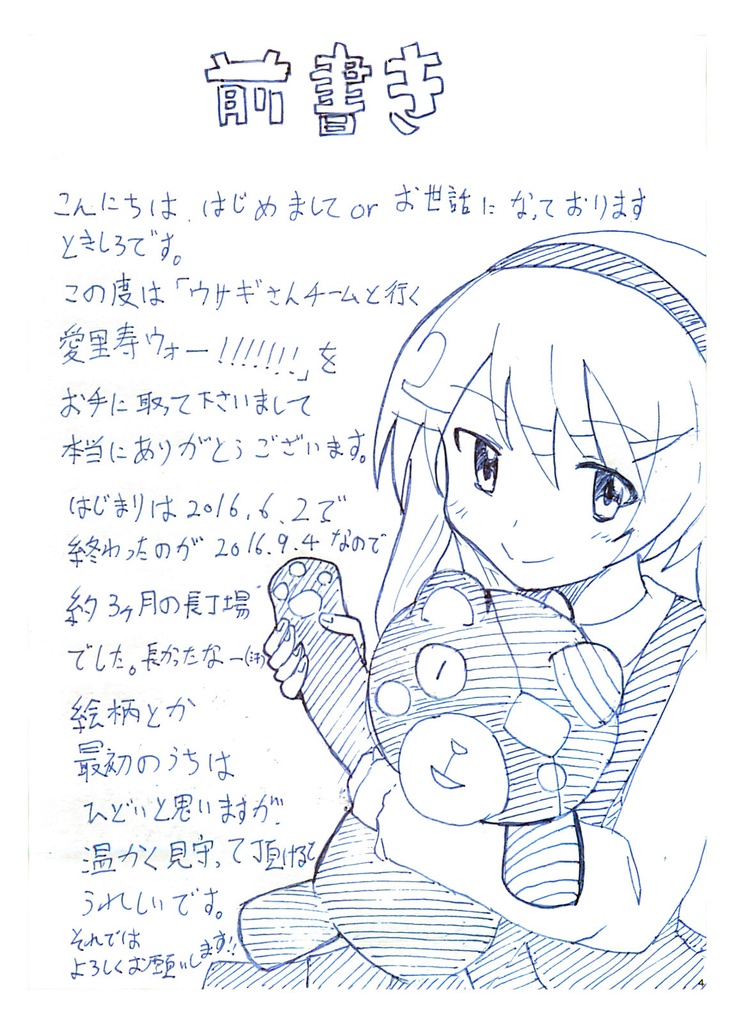 前書き
こんにちは、はじめまして or お世話になっております
ときしろです。
この度は「ウサギさんチームと行く
愛里寿ウォー!!!!!!!」を
お手に取って下さいまして
本当にありがとうございます。
はじまりは2016.6.2で
終わったのが2016.9.4なので
約3ヶ月の長丁場
でした。長かったなー
絵柄とか
最初のうちは
ひどいと思いますが
温かく見守って頂けると
うれしいです。
それでは
よろしくお願いします!!
4